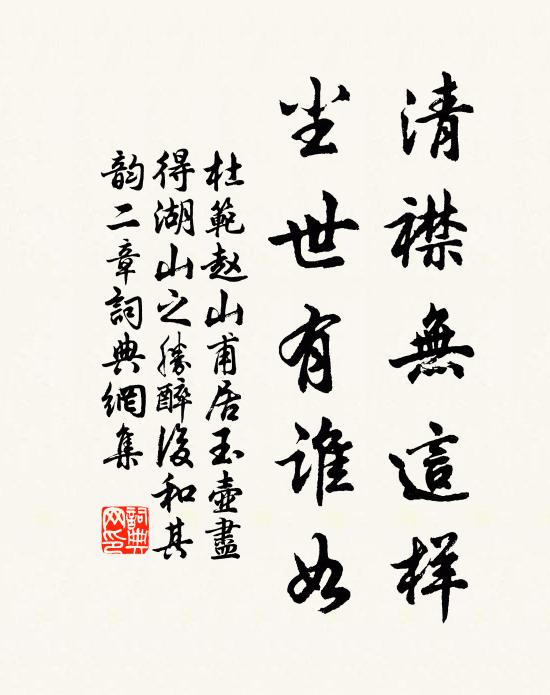 清襟無這样
尘世有谁如
杜範赵山甫居玉壺盡
得湖山之勝醉後和其
韵二章詞典網集
詞典
网印